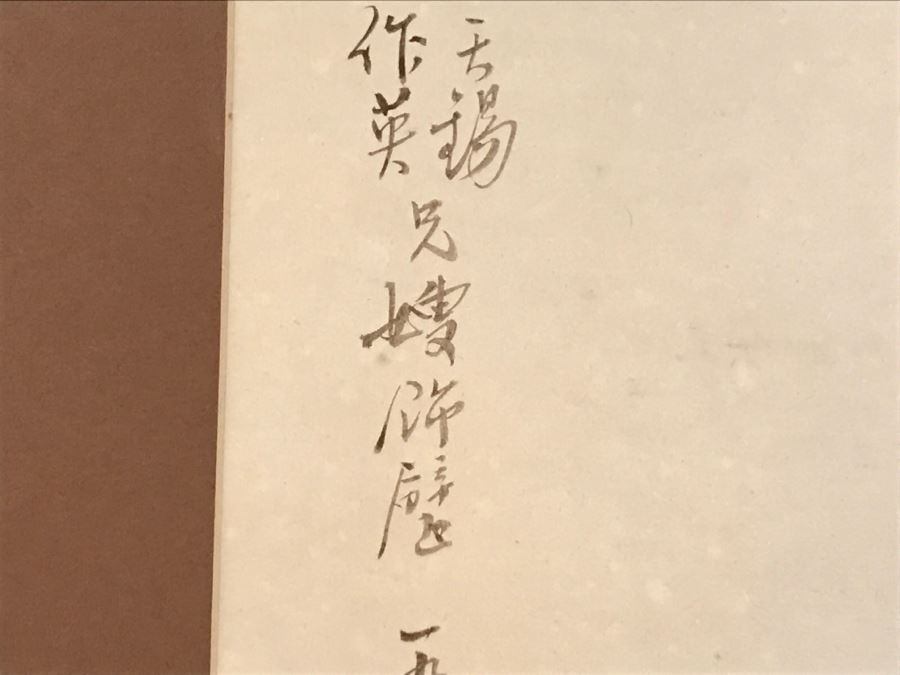 天錫
作英兄嫂飾壁 一九